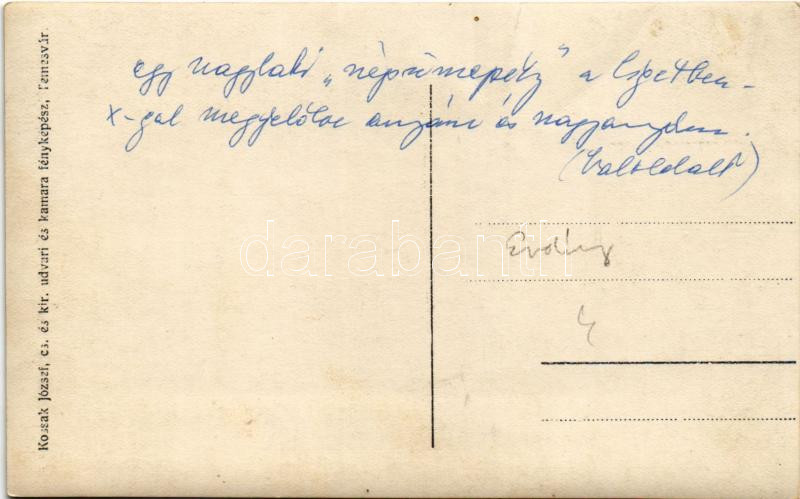 egy nagylaki „népünnepély” a ligetben -
x-gal megjelölve anyám és nagyanyám.
(baloldalt)
Erdély
4
Kossak József, cs. és kir. udvari és kamara fényképész, Temesvár.
darabanth